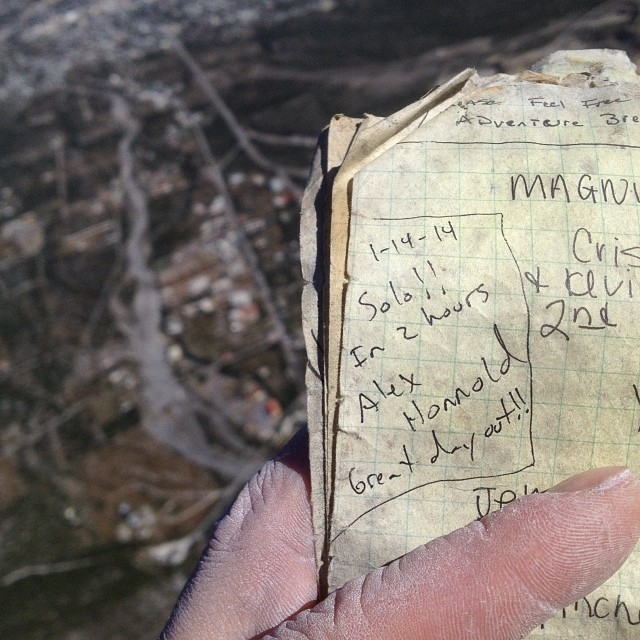 Feel Free
Adventure Bre
MAGNU
1-14-14
Solo!!
In 2 hours
Alex
Honnold
Great day out!!
Cris
& Kevi
2nd